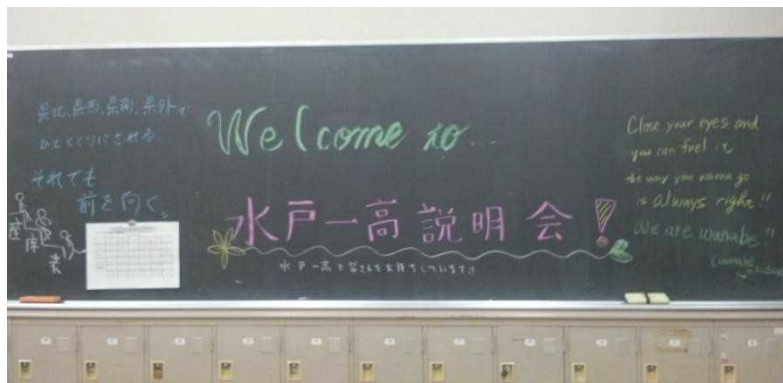 県北、県西、県南、県外と
ひとくくりにされる…
それでも
前を向く。
座席表
Welcome to...
水戸一高説明会!
水戸一高で皆さんをお待ちしています!!
Close your eyes and
you can feel it
the way you wanna go
is always right!!
We are wanabe!!